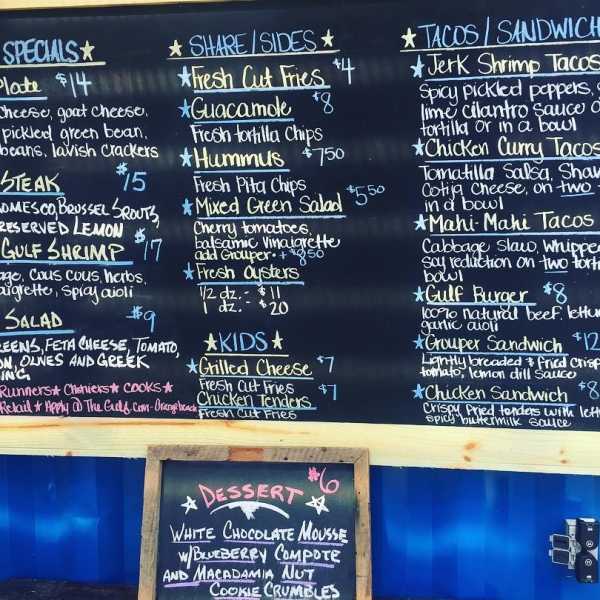 SPECIALS
Plate $14
cheese, goat cheese,
pickled green bean,
beans, lavish crackers
STEAK $15
OMESCO, BRUSSEL SPROUTS,
RESERVED LEMON
GULF SHRIMP $17
age, cous cous, herbs,
aigrette, spicy aioli
SALAD $9
REENS, FETA CHEESE, TOMATO,
ON, OLIVES AND GREEK
ING
Runners ★ Cashiers ★ COOKS ★
Retail ★ Apply @ The Gulf.com - Orange beach
★ SHARE/SIDES ★
★ Fresh Cut Fries $4
★ Guacamole $8
Fresh tortilla Chips
★ Hummus $7.50
Fresh Pita Chips
★ Mixed Green Salad $5.50
Cherry tomatoes,
balsamic vinaigrette
add Grouper • + $8.50
★ Fresh Oysters
1/2 dz. - $11
1 dz. - $20
★ KIDS ★
★ Grilled Cheese $7
Fresh Cut Fries
Chicken Tenders $7
Fresh Cut Fries
★ TACOS/SANDWICH
★ Jerk Shrimp Tacos
Spicy pickled peppers, s
lime cilantro sauce o
tortilla or in a bowl
★ Chicken Curry Tacos
Tomatilla Salsa, Shav
Cotija Cheese, on two
in a bowl
★ Mahi-Mahi Tacos
Cabbage Slaw, Whipped
soy reduction on two tort
bowl
★ Gulf Burger $8
100% natural beef, lettu
garlic aioli
★ Grouper Sandwich $12
Lightly breaded & fried crisp
tomato, lemon dill Sauce
★ Chicken Sandwich $8
Crispy fried tenders with lett
spicy buttermilk sauce
DESSERT $6
WHITE CHOCOLATE MOUSSE
W/BLUEBERRY COMPOTE
AND MACADAMIA NUT
COOKIE CRUMBLES